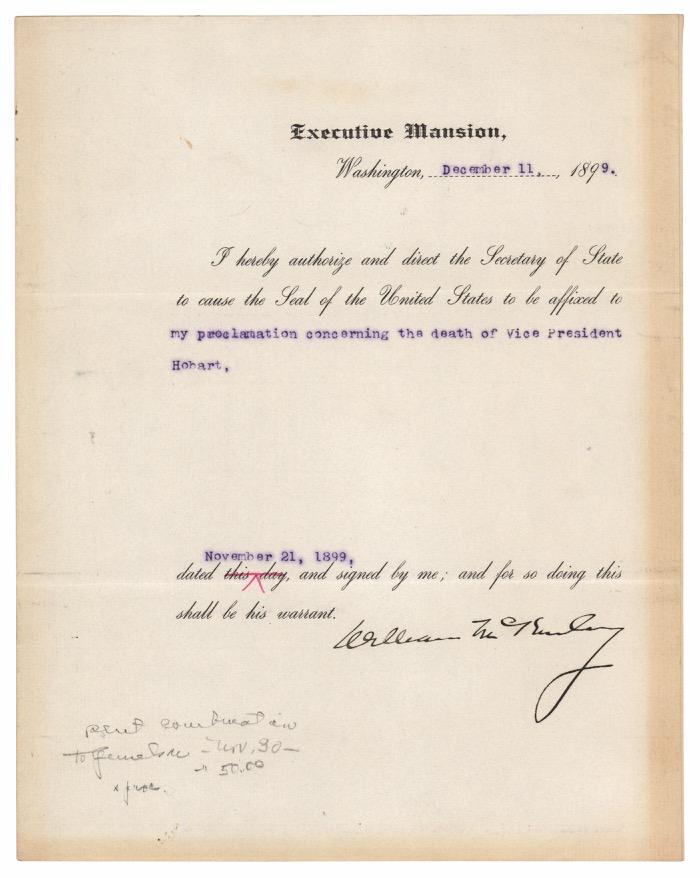 Executive Mansion,
Washington, December 11, , 1899.
I hereby authorize and direct the Secretary of State
to cause the Seal of the United States to be affixed to
my proclamation concerning the death of Vice President
Hobart,
November 21, 1899,
dated this day, and signed by me; and for so doing this
shall be his warrant.
William McKinley
to Nov. 30 -
50.00